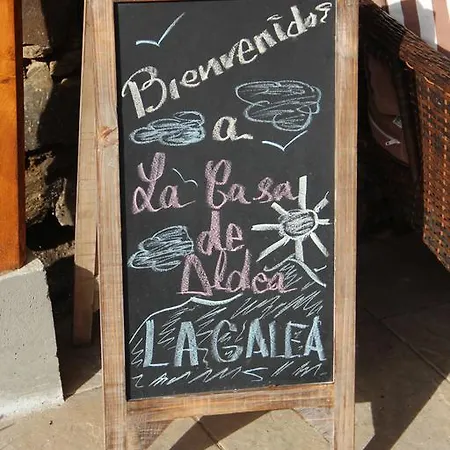 Bienvenidos
a
La Casa
de
Aldea
LA GALEA